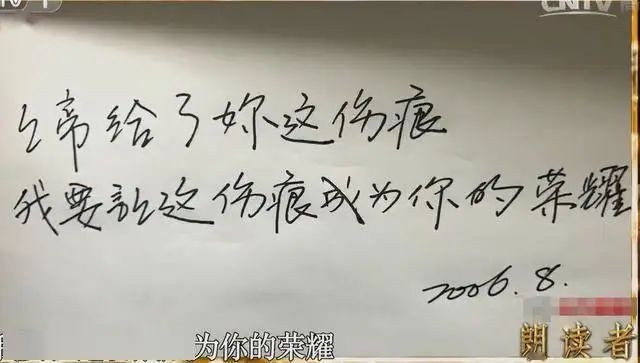 CNTV
上帝给了妳这伤痕
我要让这伤痕成为你的荣耀
2006.8.
为你的荣耀
朗读者